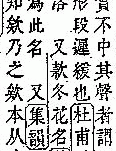 不中其聲者謂
段遲緩也杜甫
落 又款冬花名
爲此名 又集韻
知欸乃之欸本从